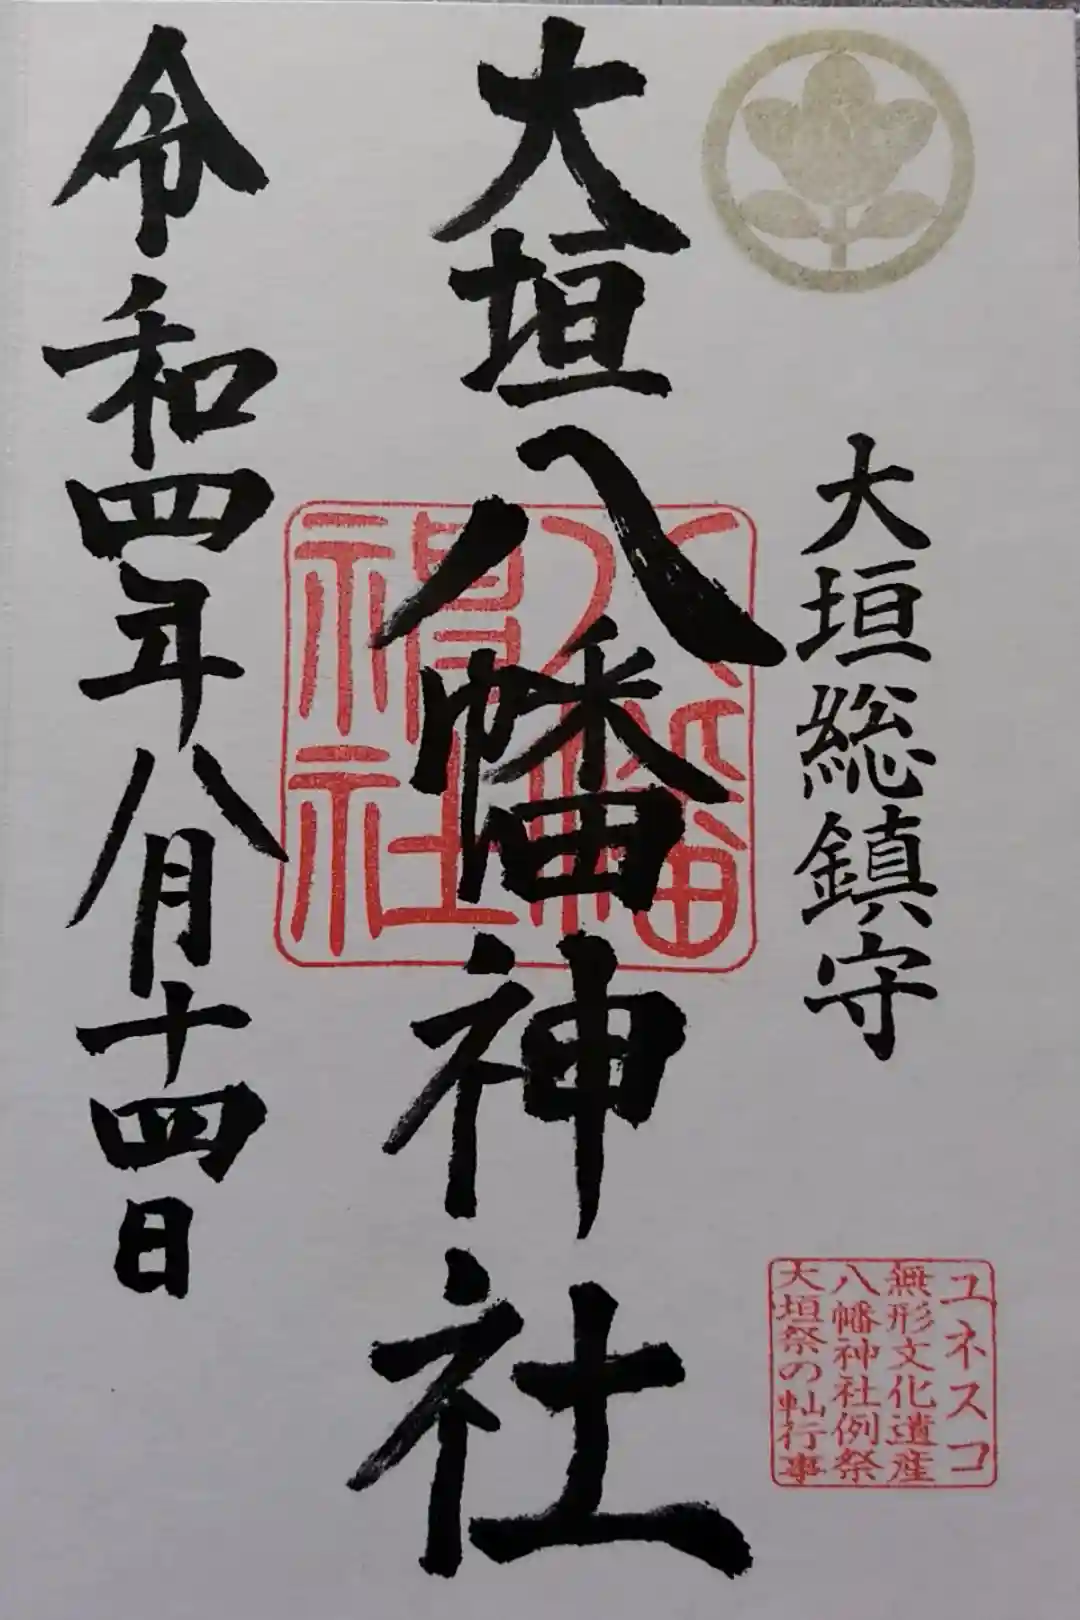 大垣総鎮守
ユネスコ
無形文化遺産
八幡神社例祭
大垣祭の軕行事
大垣八幡神社
八幡
神社
令和四年八月十四日